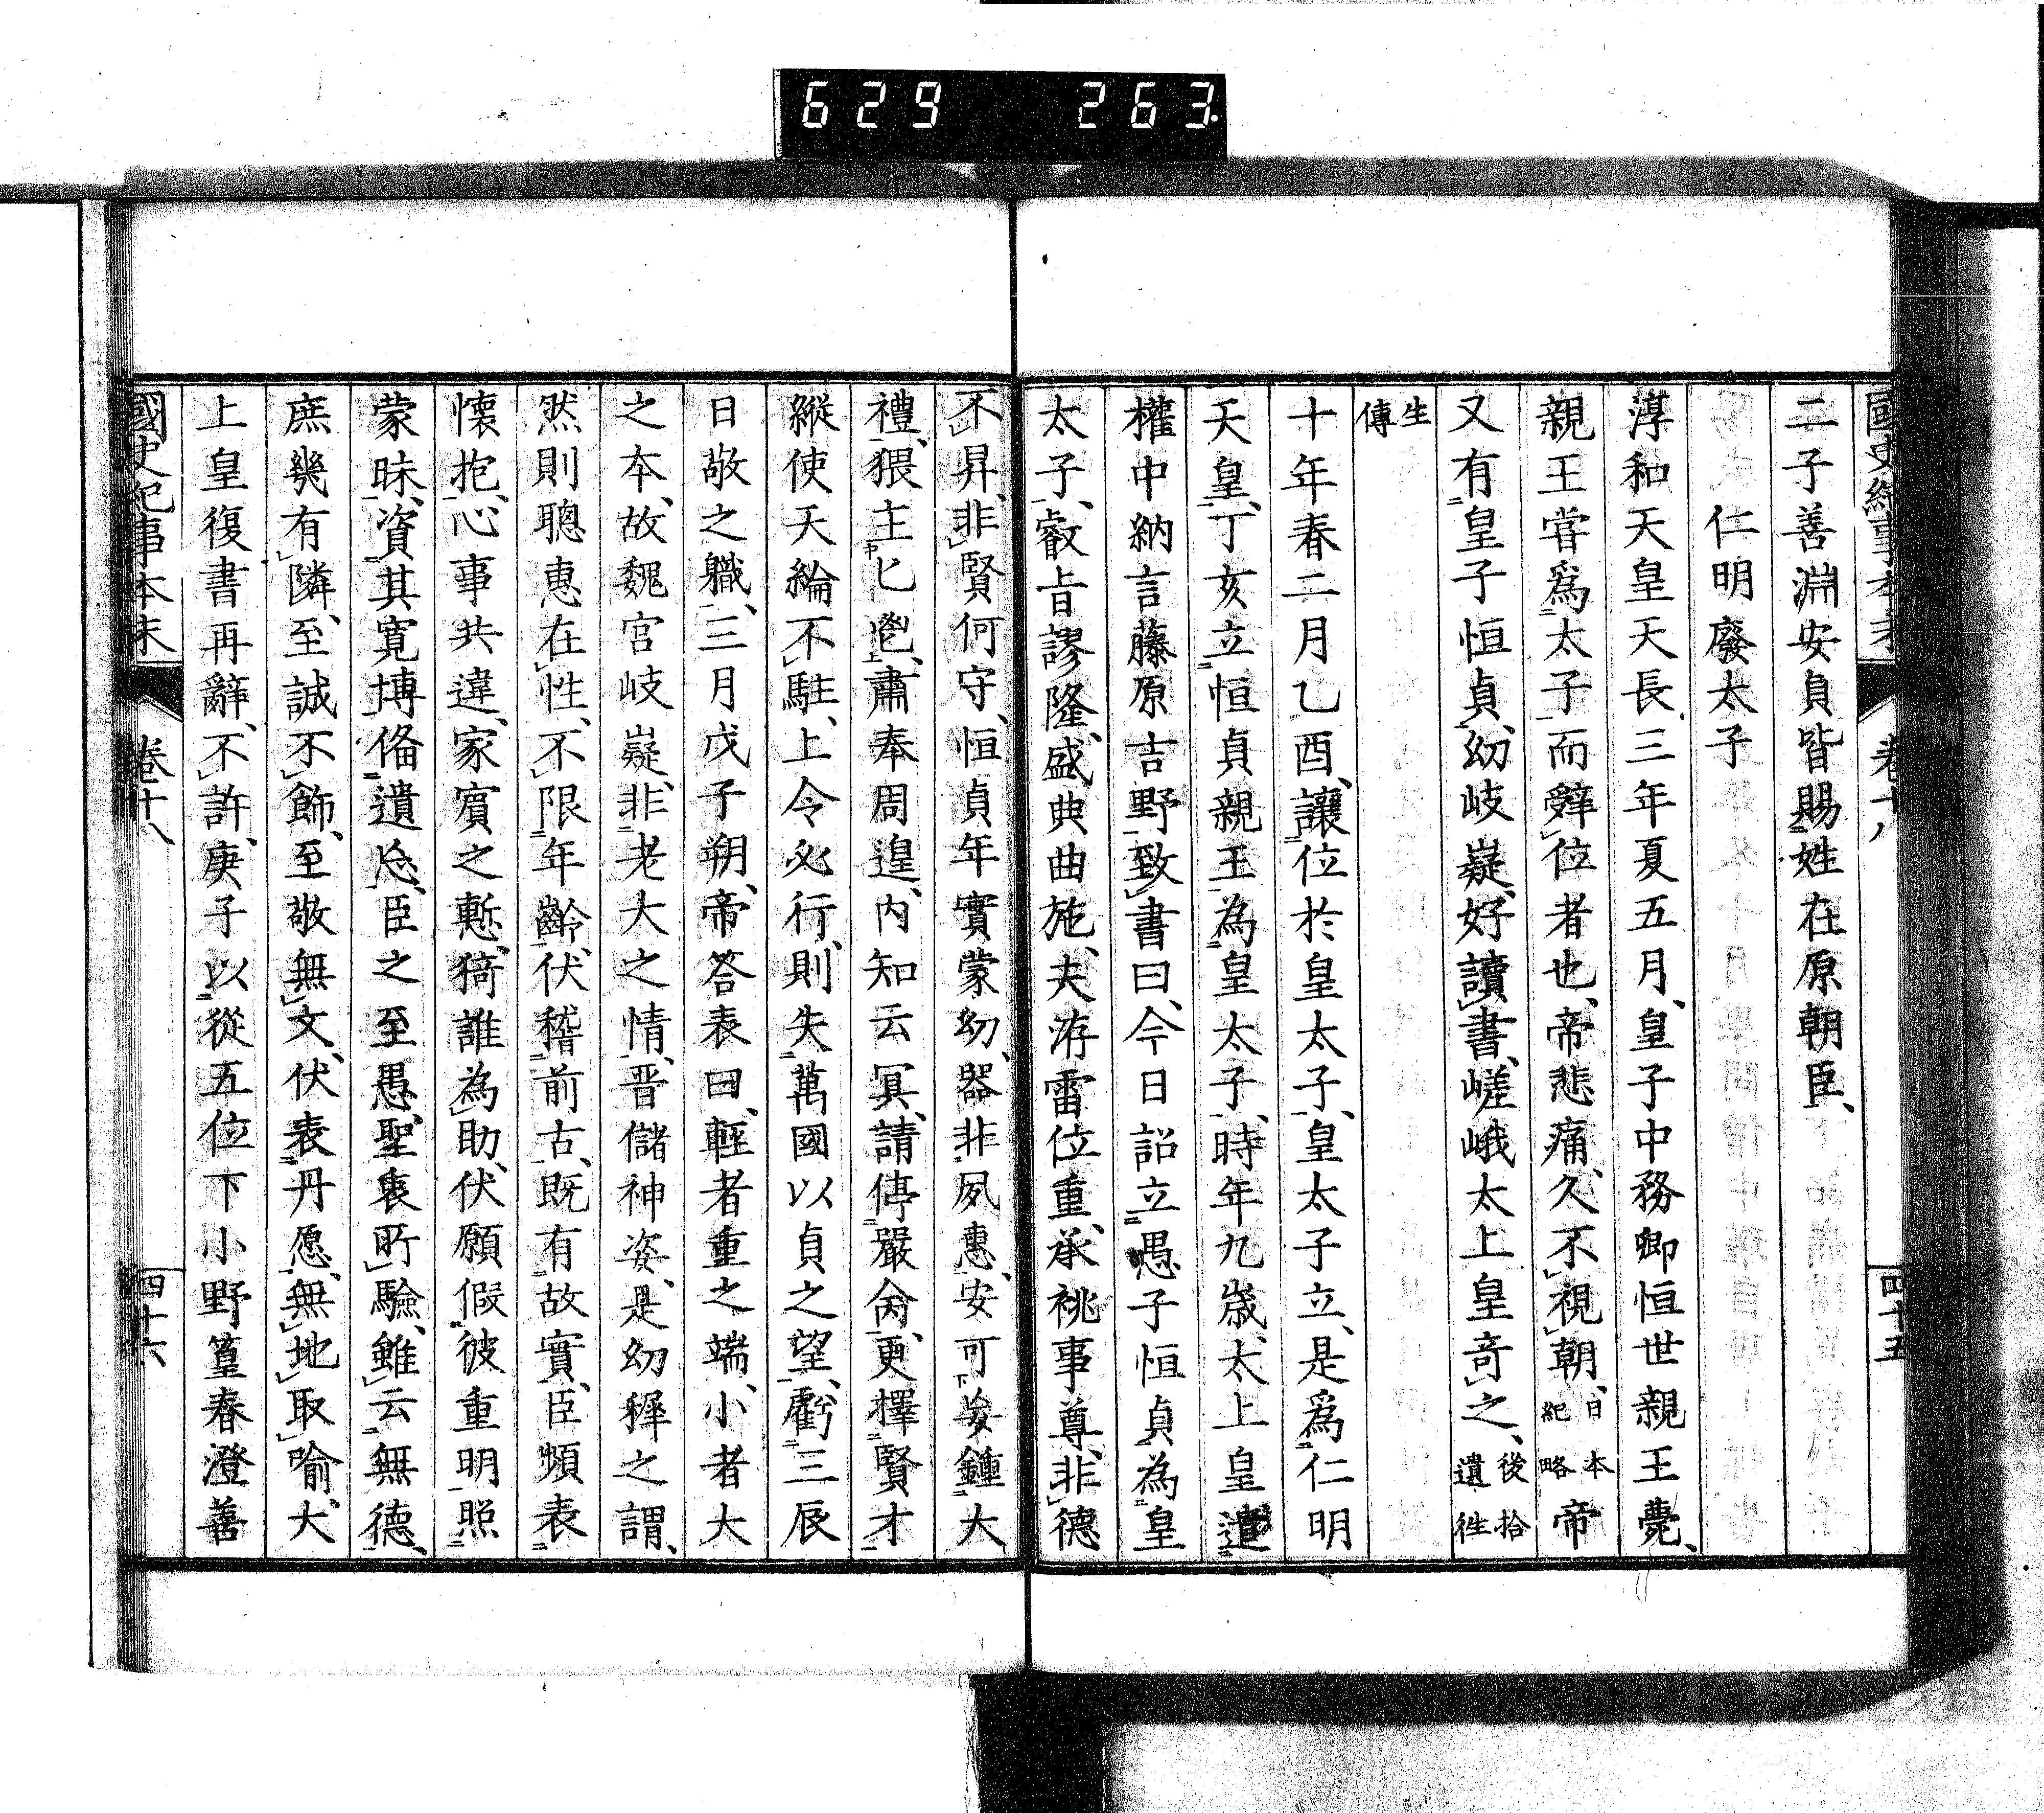 629 263
國史紀事本末 卷十八 四十五
二子善淵安貞皆賜姓在原朝臣、
仁明廢太子
淳和天皇天長三年夏五月、皇子中務卿恒世親王薨、
親王嘗爲太子而辭位者也、帝悲痛、久不視朝、日本紀略帝
又有皇子恒貞、幼岐嶷、好讀書、嵯峨太上皇奇之、後拾遺往
生傳
十年春二月乙酉、讓位於皇太子、皇太子立、是爲仁明
天皇、丁亥立恒貞親王為皇太子、時年九歲、太上皇遣
權中納言藤原吉野致書曰、今日詔立愚子恒貞為皇
太子、叡旨謬隆、盛典曲施、夫洊雷位重、承祧事尊、非德
不昇、非賢何守、恒貞年實蒙幼、器非夙惠、安可妄鍾大
禮、猥主匕鬯、肅奉周遑、内知云冥、請停嚴命、更擇賢才
縱使天綸不駐、上令必行、則失萬國以貞之望、虧三辰
日敬之職、三月戊子朔、帝答表曰、輕者重之端、小者大
之本、故魏宮岐嶷、非老大之情、晋儲神姿、是幼稺之謂、
然則聰惠在性、不限年齡、伏稽前古、既有故實、臣頻表
懷抱、心事共違、家賓之慙、猗誰為助、伏願假彼重明照
蒙昧、資其寬博備遺忩、臣之至愚、聖衷所驗、雖云無德、
庶幾有隣、至誠不飾、至敬無文、伏表丹愿、無地取喻、大
上皇復書再辭、不許、庚子以從五位下小野篁春澄善
國史紀事本末 卷十八 四十六